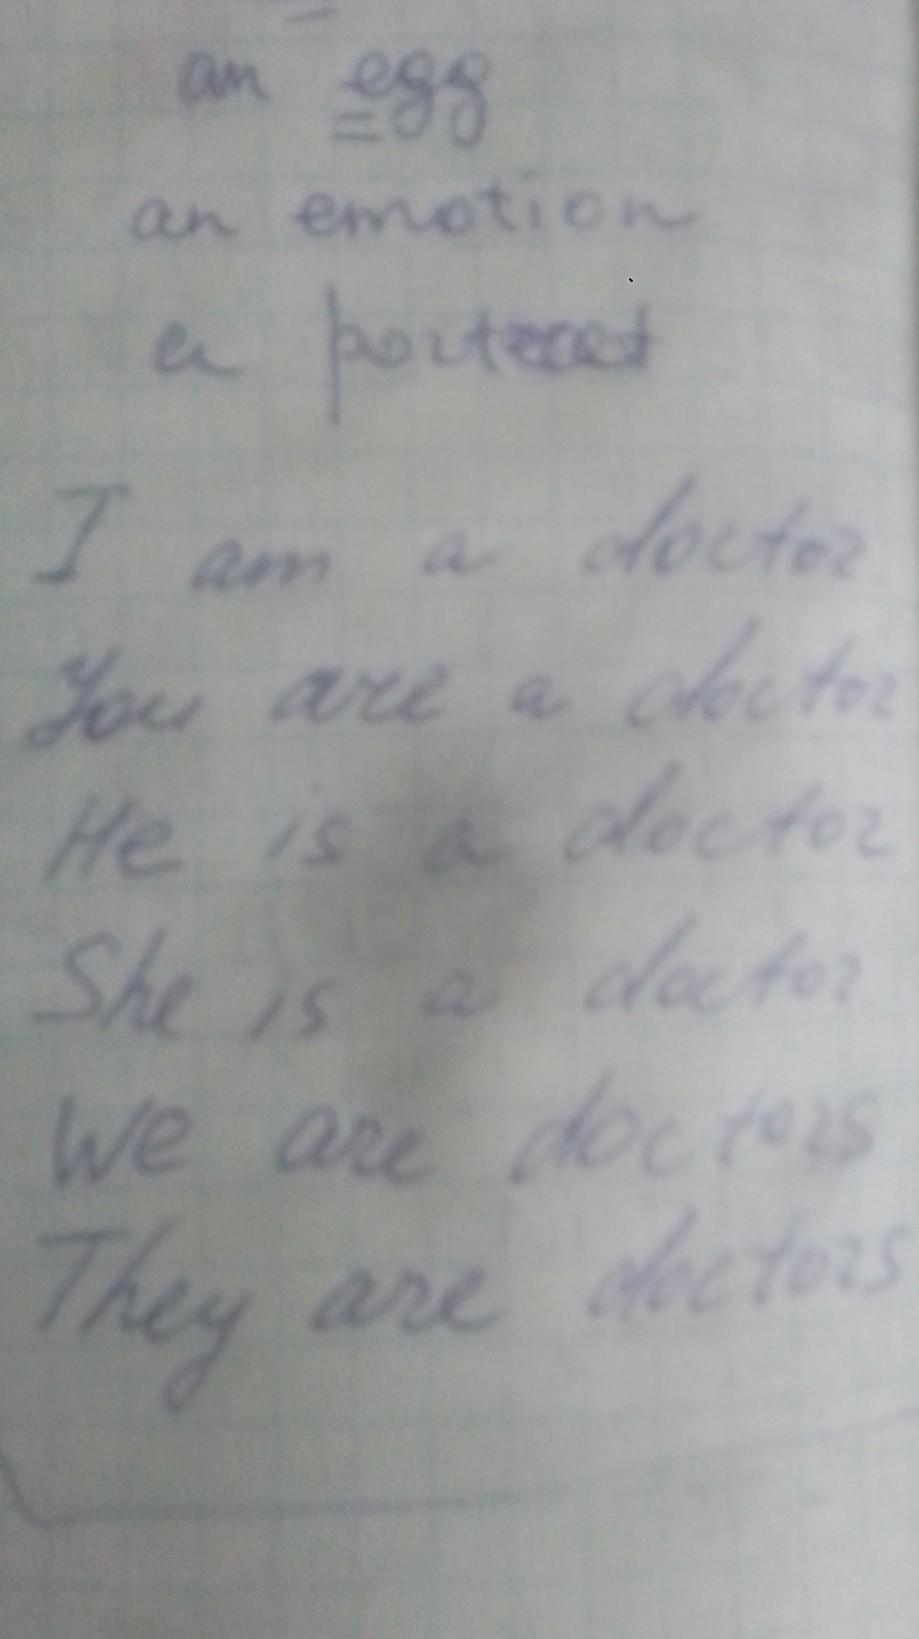 an egg
an emotion
a
I am a doctor
You are a doctor
He is a doctor
She is a doctor
We are doctors
They are doctors